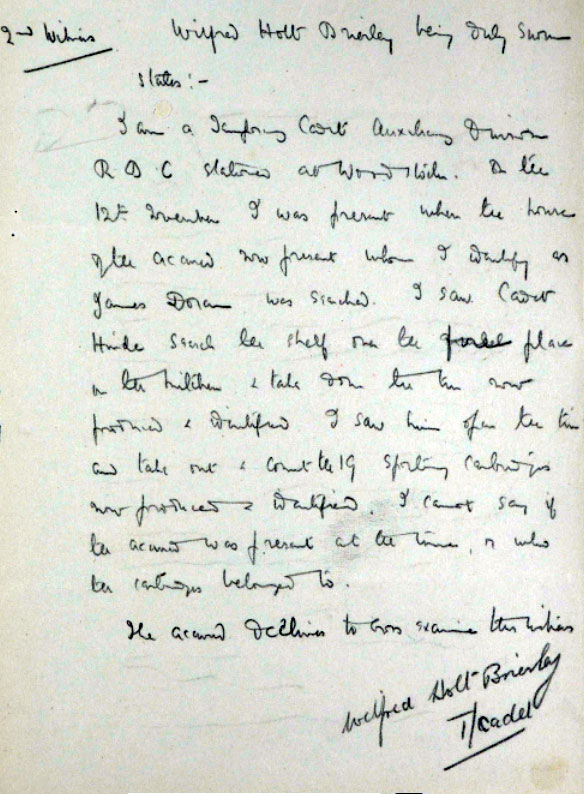 2nd Witness Wilfred Holt Brierley being duly sworn
states:-
I am a Temporary Cadet Auxiliary Division
R I C stationed at Woodstock. On the
12th November I was present when the house
of the accused now present whom I identify as
James Doran was searched. I saw Cadet
Hinde search the shelf over the place
in the kitchen & take down the tin now
produced & identified I saw him open the tin
and take out & count the 19 sporting cartridges
now produced & identified. I cannot say if
the accused was present at the time, or who
the cartridges belonged to.
The accused declines to cross examine this witness
Wilfred Holt Brierley
T/Cadet